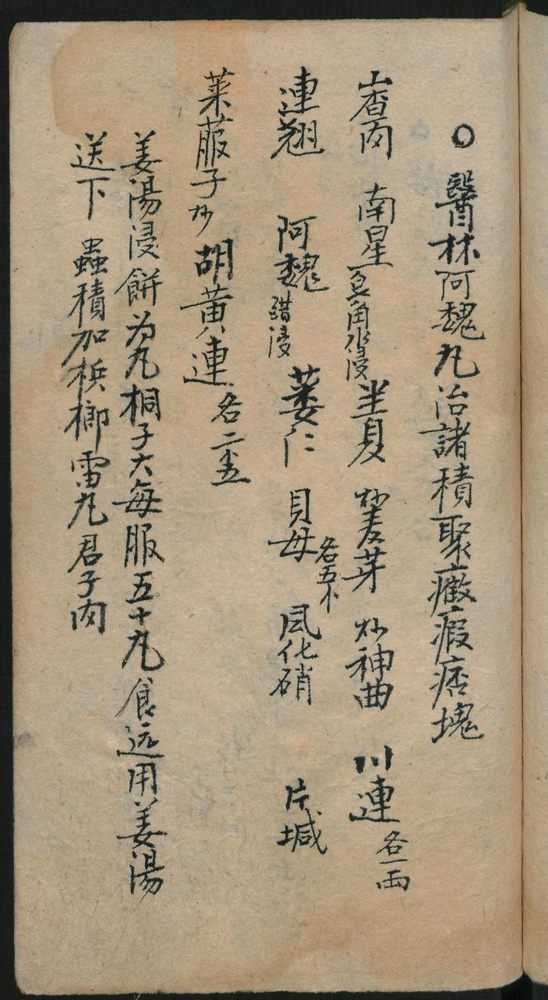 ○醫林阿魏丸治諸積聚癥瘕痞塊
山查肉 南星皂角水浸 半夏 炒麦芽 炒神曲 川連各一両
連翹 阿魏醋浸 蔞仁 貝母各五卜 風化硝 片堿
莱菔子炒 胡黄連各二卜五
姜湯浸餅为丸桐子大每服五十丸食远用姜湯
送下 蟲積加梹榔雷丸君子肉